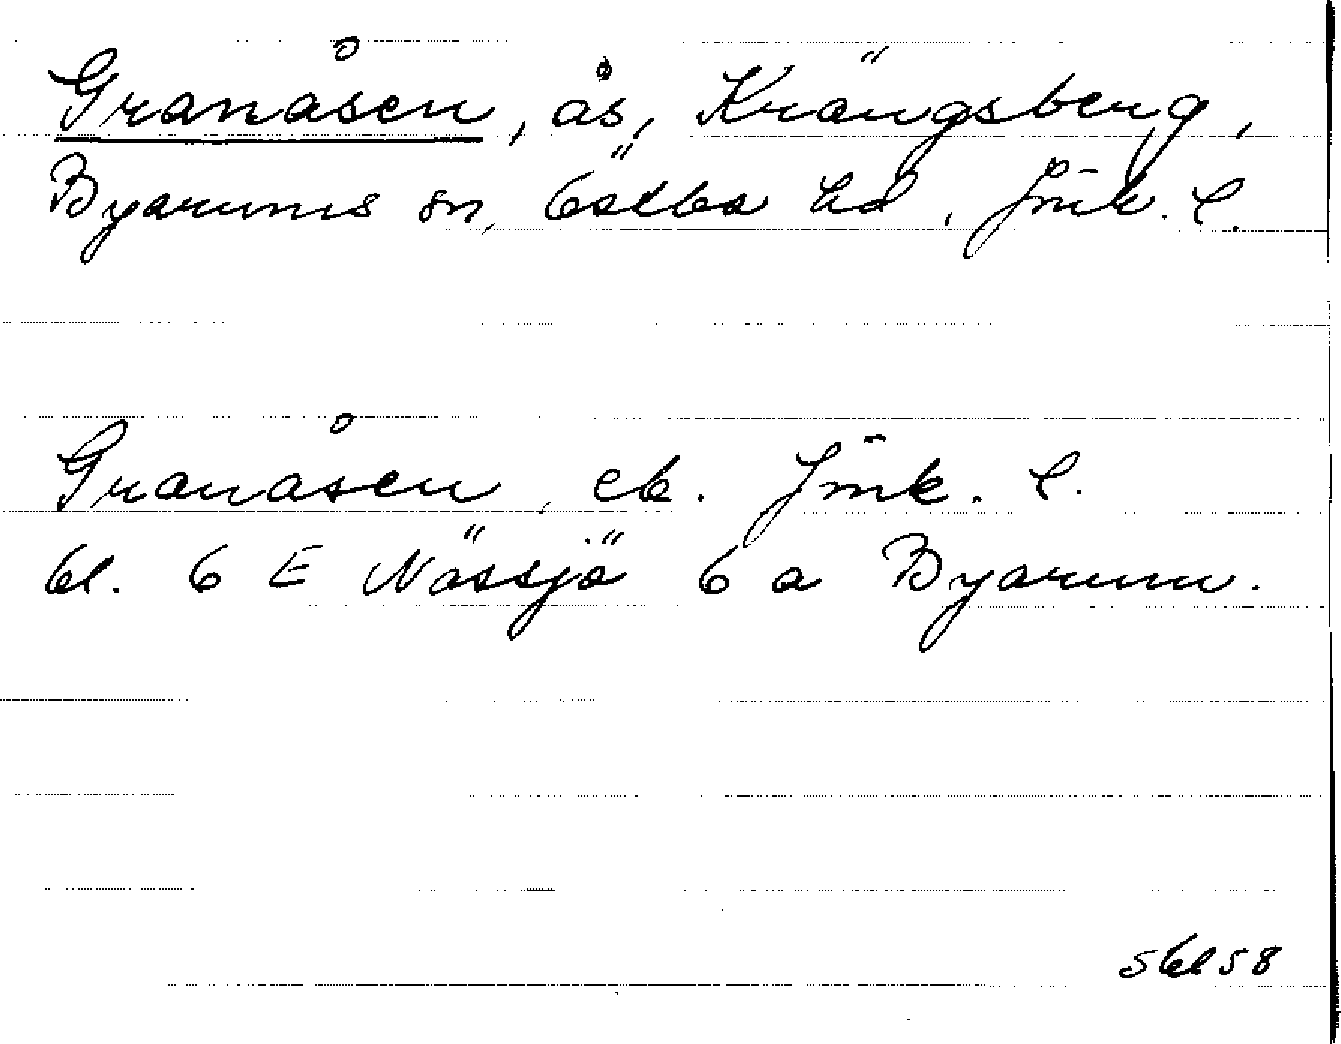 Granåsen, ås, Krängsberg,
Byarums sn, Östbo hd, Jönk. l.
Granåsen, eb. Jönk. l.
bl. 6 E Nässjö 6 a Byarum.